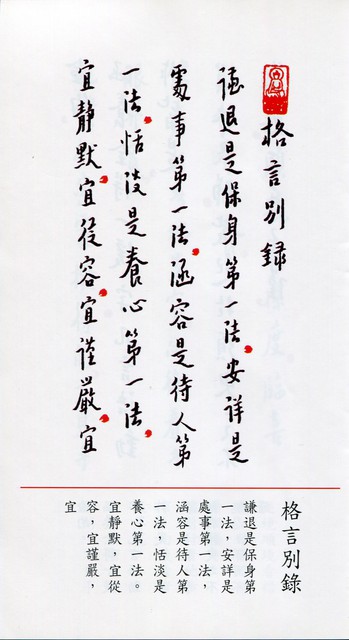 格言別錄
謙退是保身第一法安詳是
處事第一法涵容是待人第
一法恬淡是養心第一法
宜靜默宜從容宜謹嚴宜
格言別錄
謙退是保身第
一法，安詳是
處事第一法，
涵容是待人第
一法，恬淡是
養心第一法。
宜靜默，宜從
容，宜謹嚴，
宜